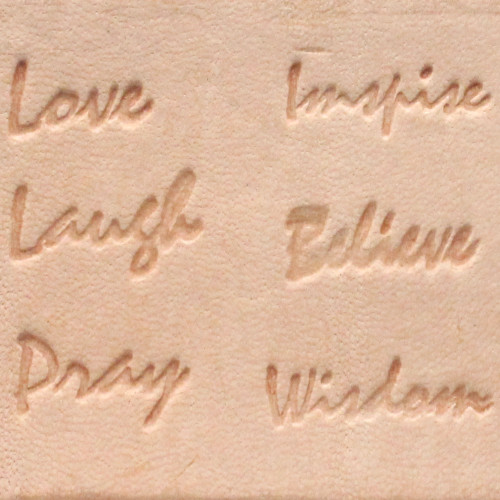 Love
Inspise
Laugh
Believe
Pray
Wisdom